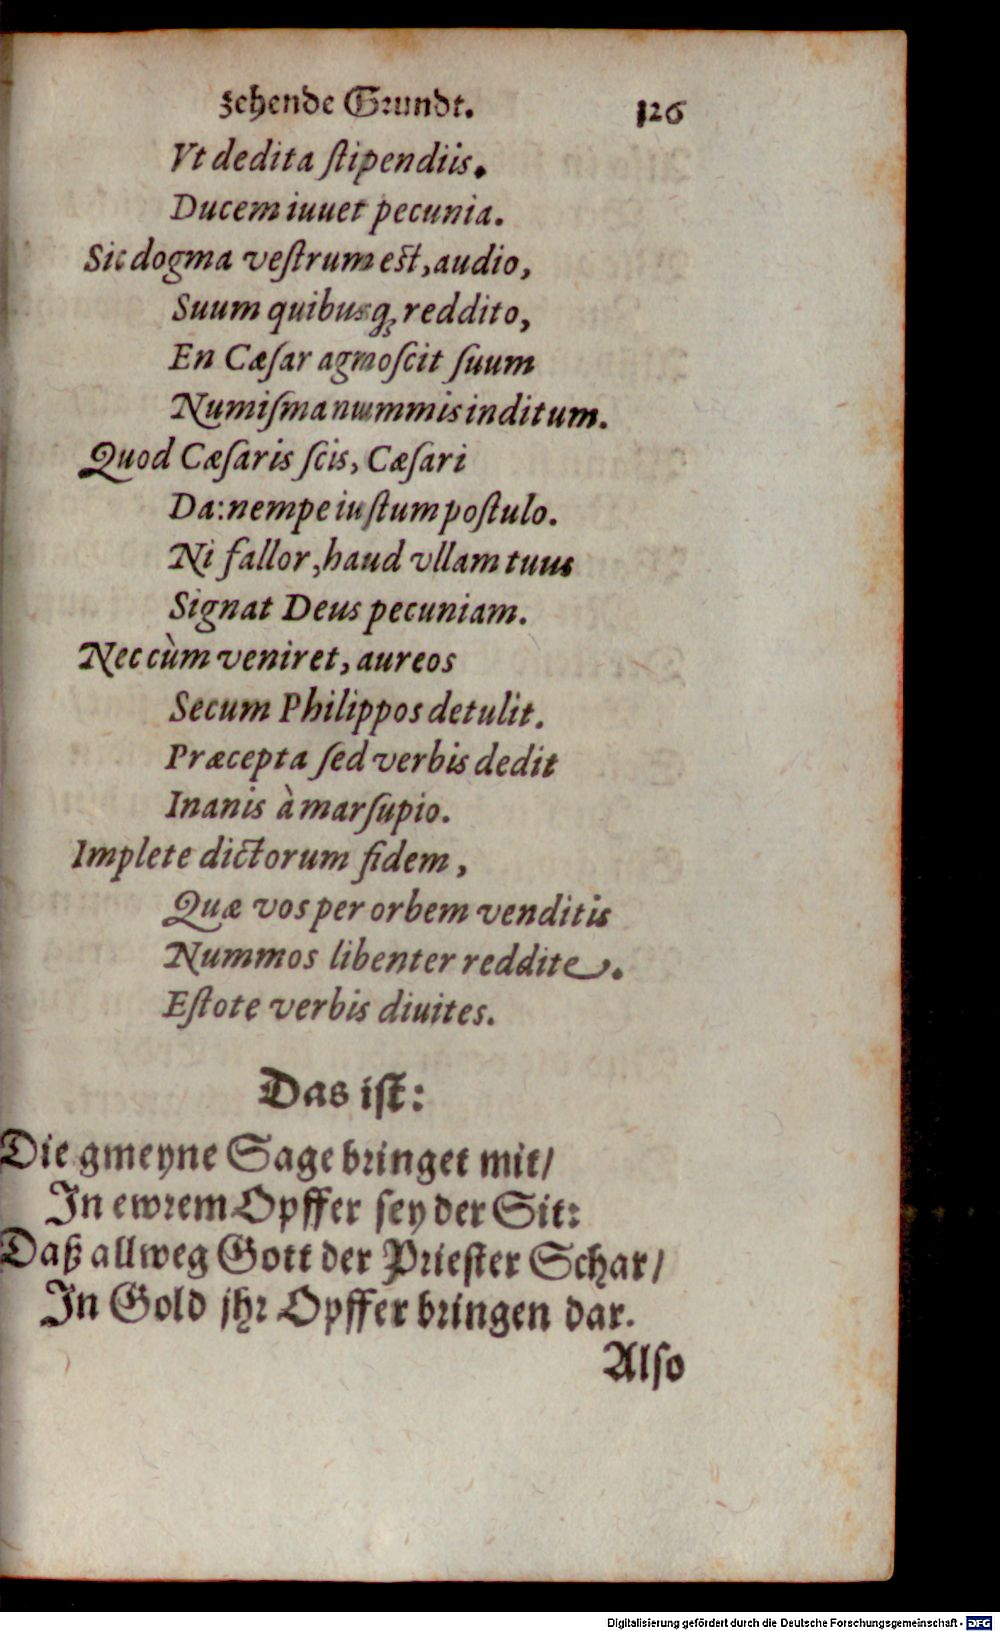 zehende Grundt. 126
Vt dedita ſtipendiis.
Ducem iuuet pecunia.
Sic dogma veſtrum est, audio,
Suum quibusq; reddito,
En Cæſar agnoſcit ſuum
Numiſma nummis inditum.
Quod Cæſaris ſcis, Cæſari
Da: nempe iuſtum poſtulo.
Ni fallor, haud vllam tuus
Signat Deus pecuniam.
Nec cùm veniret, aureos
Secum Philippos detulit.
Præcepta ſed verbis dedit
Inanis à marſupio.
Implete dictorum fidem,
Quæ vos per orbem venditis
Nummos libenter reddite.
Eſtote verbis diuites.
Das iſt:
Die gmeyne Sage bringet mit/
In ewrem Opffer ſey der Sit:
Daß allweg Gott der Prieſter Schar/
In Gold jhr Opffer bringen dar.
Alſo
Digitalisierung gefördert durch die Deutsche Forschungsgemeinschaft - DFG